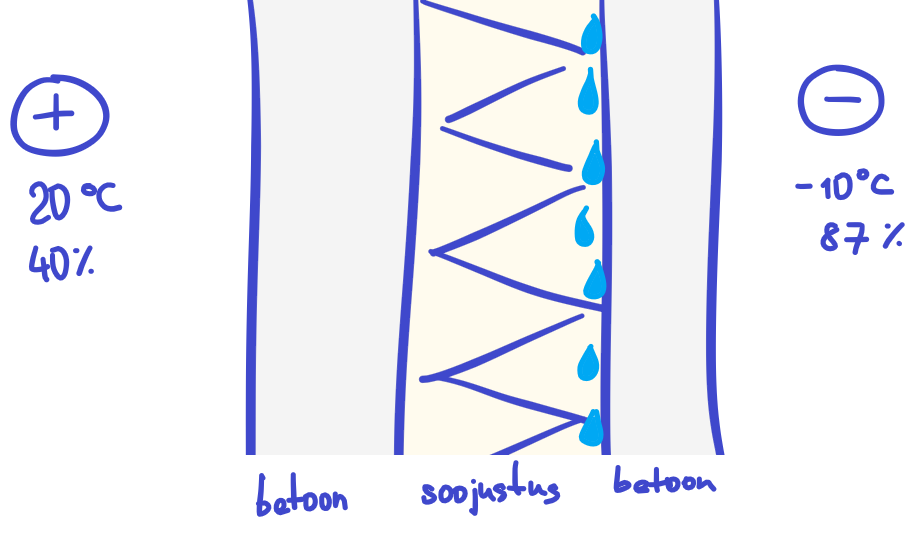 +
20°C
40%
−
-10°C
87%
betoon
soojustus
betoon